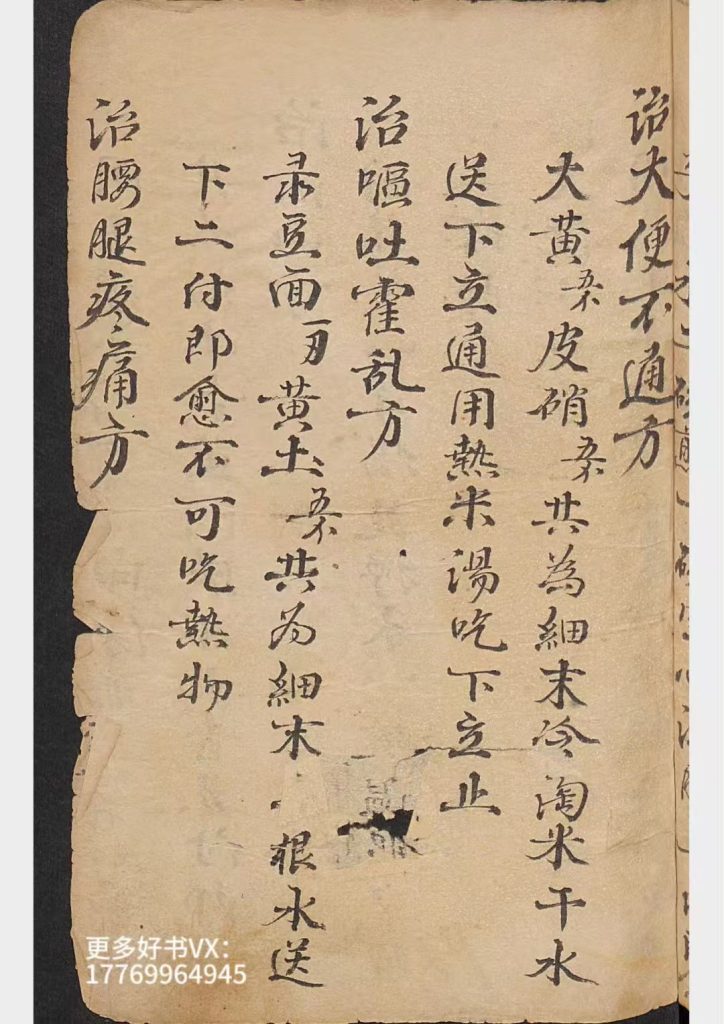 治大便不通方
大黄 皮硝 共為細末冷淘米干水
送下立通用熱米湯吃下立止
治嘔吐霍乱方
豆面 黄土 共为细末 根水送
下二付即愈不可吃熱物
治腰腿疼痛方
更多好书VX:
17769964945